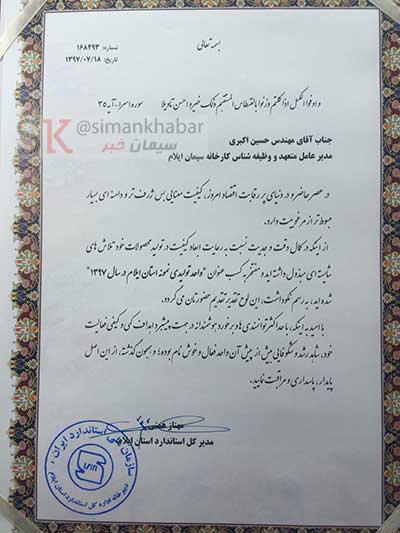 بسمه تعالی
شماره: ۱۶۸۴۹۳
تاریخ: ۱۳۹۷/۰۷/۱۸
و اوفوا الکیل اذا کلتم وزنوا بالقسطاس المستقیم ذلک خیر و احسن تاویلا سوره اسراء-آیه ۳۵
SK @simankhabar
سیمان خبر
جناب آقای مهندس حسین اکبری
مدیر عامل متعهد و وظیفه شناس کارخانه سیمان ایلام
در عصر حاضر و در دنیای پر رقابت اقتصاد امروز، کیفیت معنایی بس ژرف تر و دامنه ای بسیار
مبسوط تر از مرغوبیت دارد.
از اینکه در کمال دقت و جدیت نسبت به رعایت ابعاد کیفیت در تولید محصولات خود تلاش های
شایسته ای مبذول داشته اید و مفتخر به کسب عنوان "واحد تولیدی نمونه استان ایلام در سال ۱۳۹۷"
شده اید، به رسم نکوداشت، این لوح تقدیر تقدیم حضورتان می گردد.
با امید به اینکه، با حداکثر توانمندی ها و برخورد هوشمندانه در جهت پیشبرد اهداف کمی و کیفی فعالیت
خود، شاهد رشد و شکوفایی بیش از پیش آن واحد فعال و خوش نام بوده و همچون گذشته، از این اصل
پایدار، پاسداری و مراقبت نمایید.
مهناز همتی
مدیر کل استاندارد استان ایلام
سازمان ملی استاندارد ایران
دبیرخانه اداره کل استاندارد استان ایلام